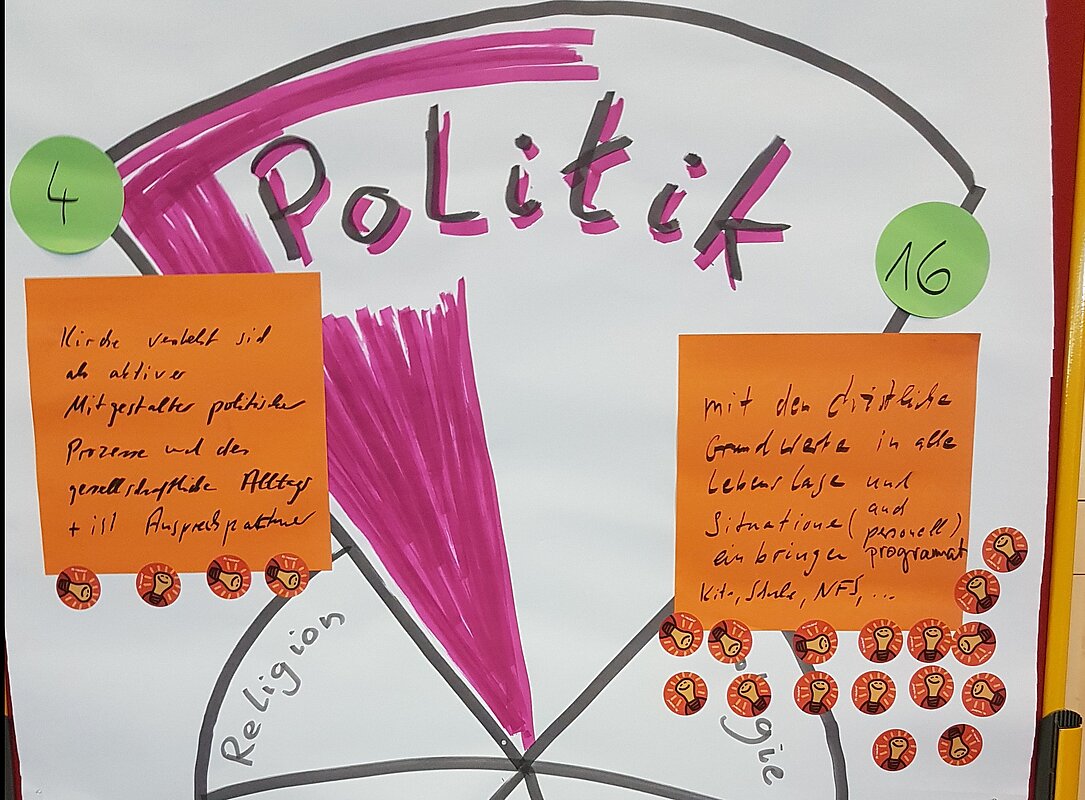 Politik
4
Kirche versteht sich
als aktiver
Mitgestalter politischer
Prozesse und des
gesellschaftliche Alltags
+ ist Ansprechpartner
16
mit den christliche
Grundwerte in alle
Lebenslage und
Situatione (auch personell)
einbringen programmat
Kita, Schule, NFS, ...
Religion
gie